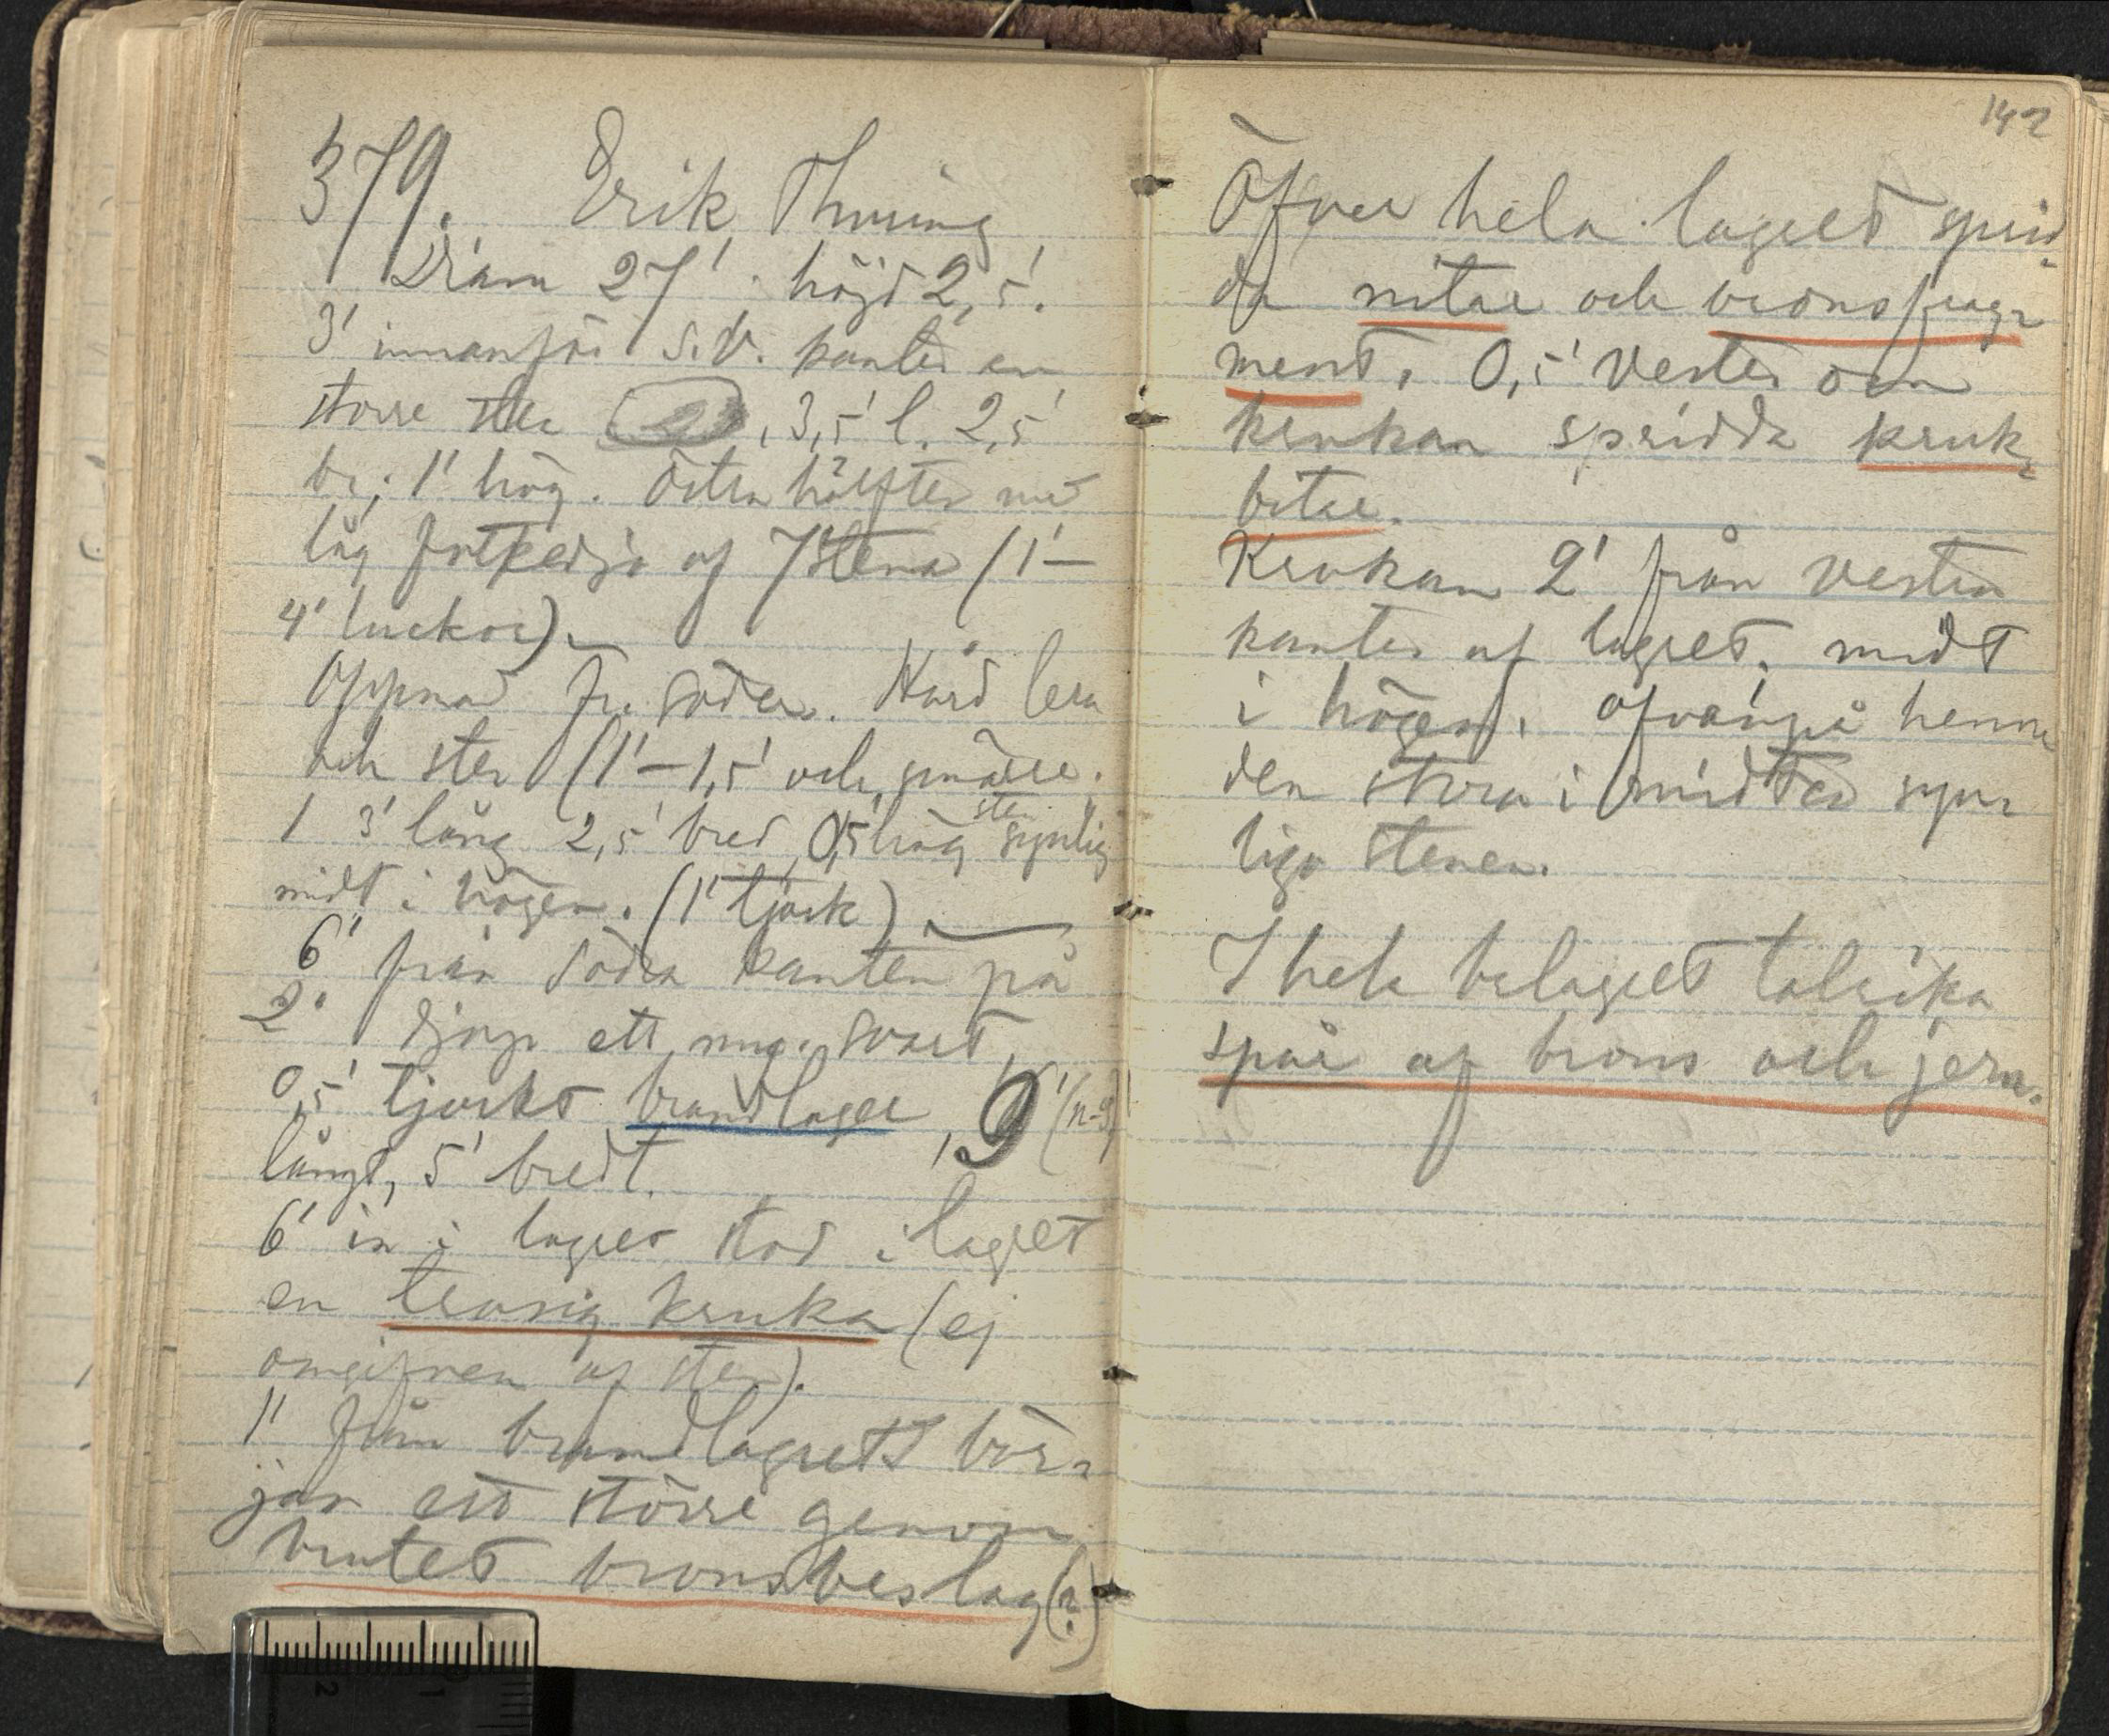 379. Erik Thuring
Diam 27' höjd 2,5'.
3' innanför S.V. kanten en
större sten , 3,5' l. 2,5'
br, 1' hög. Östra hälften med
låg fotkedja af 7 stena (1'–
4' luckor).
Öppnad fr. söder. Hård lera
och sten (1'–1,5' och smärre.
1 3' lång 2,5' bred 0,5' hög sten synlig
midt i högen. (1' tjock)
6' från södra kanten på
2' djup ett mug. svart,
0,5' tjockt brandlager, 9' (n-s)
långt, 5' bredt.
6' in i lagret stod i lagret
en trasig kruka (ej
omgifven af sten).
1' från brandlagrets bör-
jan ett större genom
brutet bronsbeslag(?)
142
Öfver hela lagret sprid-
da nitar och bronsfrag-
ment. 0,5' Vester om
krukan spridda kruk-
bitar.
Krukan 2' från vestra
kanten af lagret, midt
i högen, ofvanpå henne
den stora i midten syn-
liga stenen.
I hela bålagret talrika
spår af brons och jern.